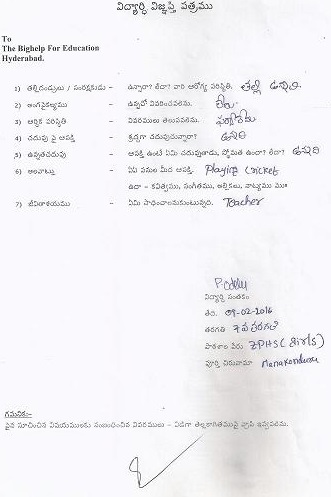 విద్యార్థి విజ్ఞప్తి పత్రము
To
The Bighelp For Education
Hyderabad.
1) తల్లిదండ్రులు / సంరక్షకుడు - ఉన్నారా? లేదా? వారి ఆరోగ్య పరిస్థితి. తల్లి ఉన్నది
2) అంగవైకల్యము - ఉన్నచో వివరించవలెను. లేదు
3) ఆర్థిక పరిస్థితి - వివరములు తెలుపవలెను.
4) చదువు పై ఆసక్తి - శ్రద్ధగా చదువుచున్నారా? ఉన్నది
5) ఉన్నతచదువు - ఆసక్తి ఉంటే ఏమి చదువుతాడు, స్తోమత ఉందా? లేదా? ఉన్నది
6) అలవాట్లు - ఏఏ పనుల మీద ఆసక్తి. Playing Cricket
ఉదా - కవిత్వము, సంగీతము, అల్లికలు, నాట్యము
7) జీవితాశయము - ఏమి సాధించాలనుకుంటున్నది. Teacher
విద్యార్థి సంతకం
తేది. 09-02-2016
తరగతి 7వ తరగతి
పాఠశాల పేరు ZPHS (Girls)
పూర్తి చిరునామా Manakondur
గమనిక:-
పైన సూచించిన విషయములకు సంబంధించిన వివరములు - విడిగా తెల్లకాగితముపై వ్రాసి ఇవ్వవలెను.